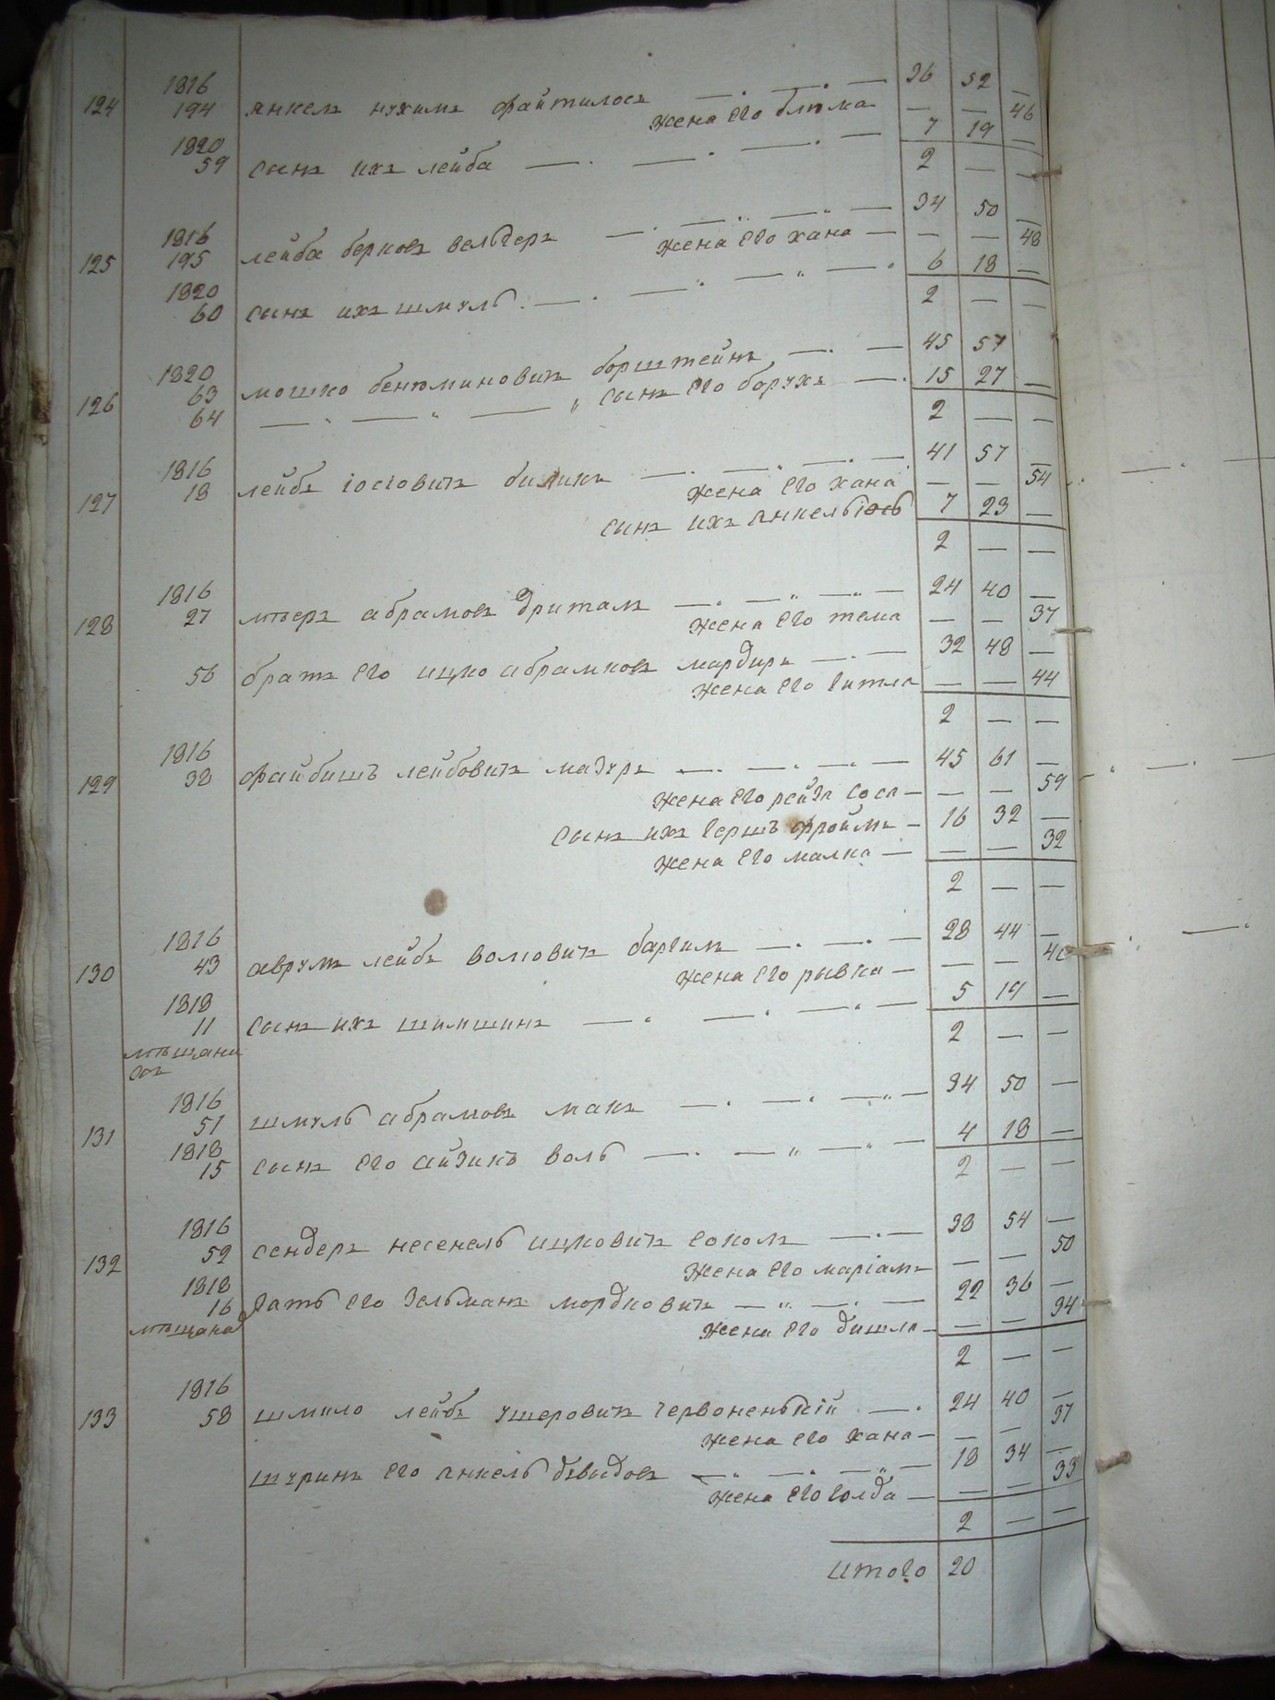 1816 36 52 —
124 194 янкель нухимъ файтилось
жена его блюма — — 46
1820 7 19 —
59 сынъ ихъ лейба 2 — —
1816 34 50 —
125 195 лейба берковъ вельгеръ
жена его хана — — 48
1820 6 18 —
60 сынъ ихъ шмуль 2 — —
1820 45 57
126 63 мошко бенюминовичъ борштейнъ
64 сынъ его борухъ 15 27 —
2 — —
1816 41 57 —
127 18 лейбъ іосіовичъ
жена его хана — — 54
сынъ ихъ янкель 7 23 —
2 — —
1816 24 40 —
128 27 мееръ абрамовъ
жена его тема — — 37
56 братъ его ицко абрамковъ 32 48 —
жена его гитля — — 44
2 — —
1816 45 61 —
129 38 файбишъ лейбовичъ мазуръ
жена его рейзя сося — — 59
сынъ ихъ гершъ фроймъ 16 32 —
жена его малка — — 32
2 — —
1816 28 44 —
130 43 аврумъ лейбъ волковичъ
жена его рывка — — 40
1818 5 19 —
11 сынъ ихъ шимшинъ
2 — —
мѣщани
1816 34 50 —
131 51 шмуль абрамовъ макъ
1818 4 18 —
15 сынъ его айзикъ воль
2 — —
1816 38 54 —
132 52 сендеръ несенель ицковичъ соколъ
жена его маріамъ — — 50
1818 22 36 —
16 зать его зельманъ мордковичъ
мѣщане жена его — — 34
2 — —
1816 24 40 —
133 58 шмило лейбъ ушеровичъ червоненькій
жена его хана — — 37
шуринъ его янкель давыдовъ 18 34 —
жена его голда — — 33
2 — —
итого 20